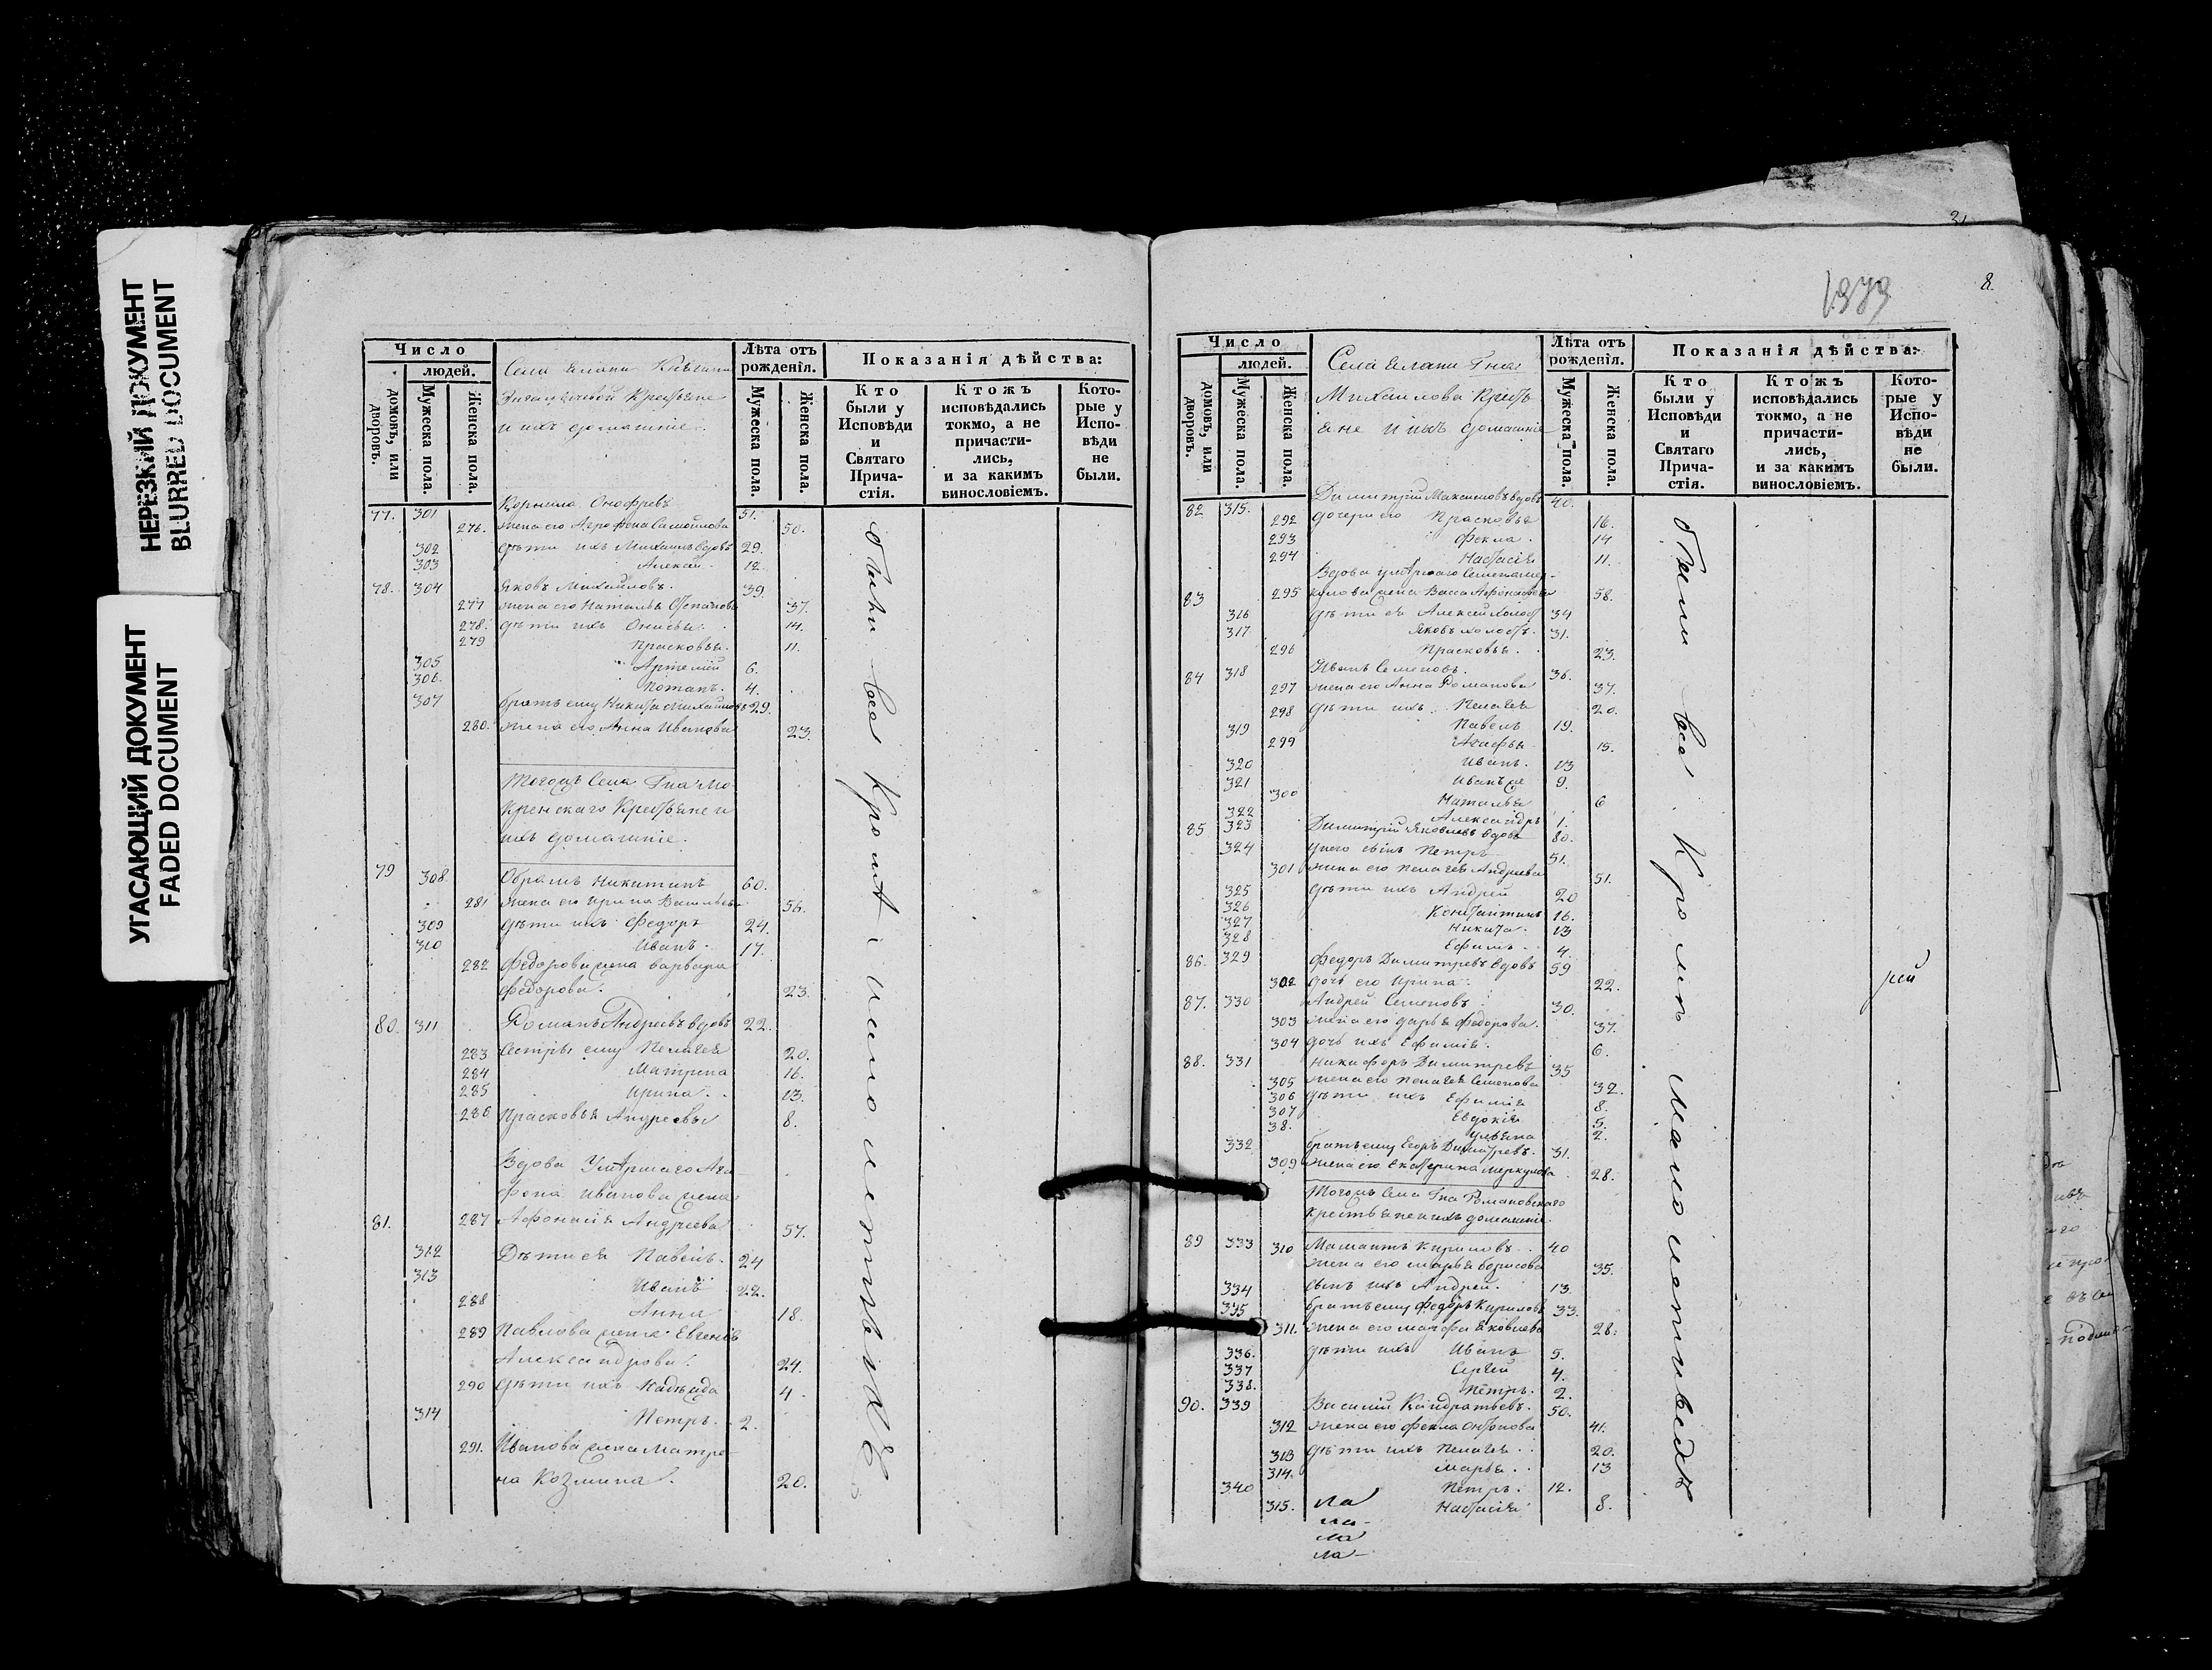 НЕРЕЗКИЙ ДОКУМЕНТ
BLURRED DOCUMENT
УГАСАЮЩИЙ ДОКУМЕНТ
FADED DOCUMENT
Число
людей.
домовъ, или дворовъ.
Мужеска пола.
Женска пола.
Села Елани
Крестьяне
и ихъ домашніе.
Лѣта отъ рожденія.
Мужеска пола.
Женска пола.
Показанія дѣйства:
Кто были у Исповѣди и Святаго Причастія.
Ктожъ исповѣдались токмо, а не причастились, и за какимъ винословіемъ.
Которые у Исповѣди не были.
77. 301 Корнила Онофревъ 51.
276. жена его Агрофена Самойлова 50.
302 дѣти ихъ Михаилъ вдовъ 29.
303 Алексей 12.
78. 304 Яковъ Михайловъ. 39.
277 жена его Наталья Степанова 37.
278. дѣти ихъ Онисья. 14.
279 Прасковья. 11.
305 Артемій 6.
306. Потапъ. 4.
307 братъ ему Никита Михайловъ 29.
280. жена его Анна Иванова 23.
Тогожъ Села Гна Мо
кренскаго Крестьяне и
ихъ домашніе.
79 308 Обрамъ Никитинъ 60.
281 жена его Ирина Васильева 56.
309 дѣти ихъ Федоръ 24.
310 Иванъ. 17.
282 Федорова жена Варвара
Федорова. 23.
80. 311 Романъ Андреевъ вдовъ 22.
283 Сестры ему Пелагея 20.
284 Матрена 16.
285 Ирина. 13.
286 Прасковья Андреевы 8.
Вдова Умершаго Ага
фона Иванова жена
81. 287 Афонасія Андреева 57.
312 Дѣти ея Павелъ. 24
313 Иванъ 22.
288 Анна 18.
289 Павлова жена Евгенія
Александрова. 24.
290 дѣти ихъ Надежда 4.
314 Петръ. 2.
291. Иванова жена Матре
на Козмина. 20.
были все кроме
1373
8.
Число
людей.
домовъ, или дворовъ.
Мужеска пола.
Женска пола.
Села Елани Гна
Михаилова Кресть
яне и ихъ домашніе
Лѣта отъ рожденія.
Мужеска пола.
Женска пола.
Показанія дѣйства:
Кто были у Исповѣди и Святаго Причастія.
Ктожъ исповѣдались токмо, а не причастились, и за какимъ винословіемъ.
Которые у Исповѣди не были.
82 315. Димитрій Максимовъ вдовъ 40.
292 дочери его Прасковья 16.
293 Фекла. 14
294 Настасія 11.
Вдова умершаго Семена
83 295 жена Васса Афонасьева 58.
316 дѣти ея Алексей холостъ 34
317 Яковъ холостъ. 31.
296 Прасковья. 23.
84 318 Иванъ Семеновъ. 36.
297 жена его Анна Романова 37.
298 дѣти ихъ Пелагея 20.
319 Павелъ 19.
299 Агафья 15.
320 Иванъ. 13
321 Иванъ же 9.
300 Наталья 6
322 Александръ 1.
85 323 Димитрій Яковлевъ вдовъ 80.
324 у него сынъ Петръ 51.
301 жена его Пелагея Андреева 51.
325 дѣти ихъ Андрей 20
326 Константинъ 16.
327 Никита. 13
328 Ефимъ. 4.
86. 329 Федоръ Димитревъ вдовъ 59
302 дочь его Ирина. 22.
87. 330 Андрей Семеновъ 30.
303 жена его Дарья Федорова. 37.
304 дочь ихъ Ефимія. 6.
88. 331 Никифоръ Димитревъ 35
305 жена его Пелагея Семенова 32.
306 дѣти ихъ Ефимія 8.
307 Евдокія 5.
38. Ульяна 2.
332 братъ ему Егоръ Димитревъ. 31.
309 жена его Екатерина Меркулова 28.
Тогожъ Села Гна Романовскаго
крестьяне и ихъ домашніе.
89 333 310 Мамантъ Кириловъ. 40
жена его Марья Борисова 35.
334 сынъ ихъ Андрей. 13.
335 братъ ему Федоръ Кириловъ 33.
311. жена его Марфа Яковлева 28.
336. дѣти ихъ Иванъ 5.
337 Сергей 4.
338. Петръ. 2.
90. 339 Василий Кандратьевъ. 50.
312 жена его Фекла 41.
313 дѣти ихъ Пелагея. 20.
314. Марья. 13
340 Петръ. 12.
315. Настасія 8.
были все. Кроме мало